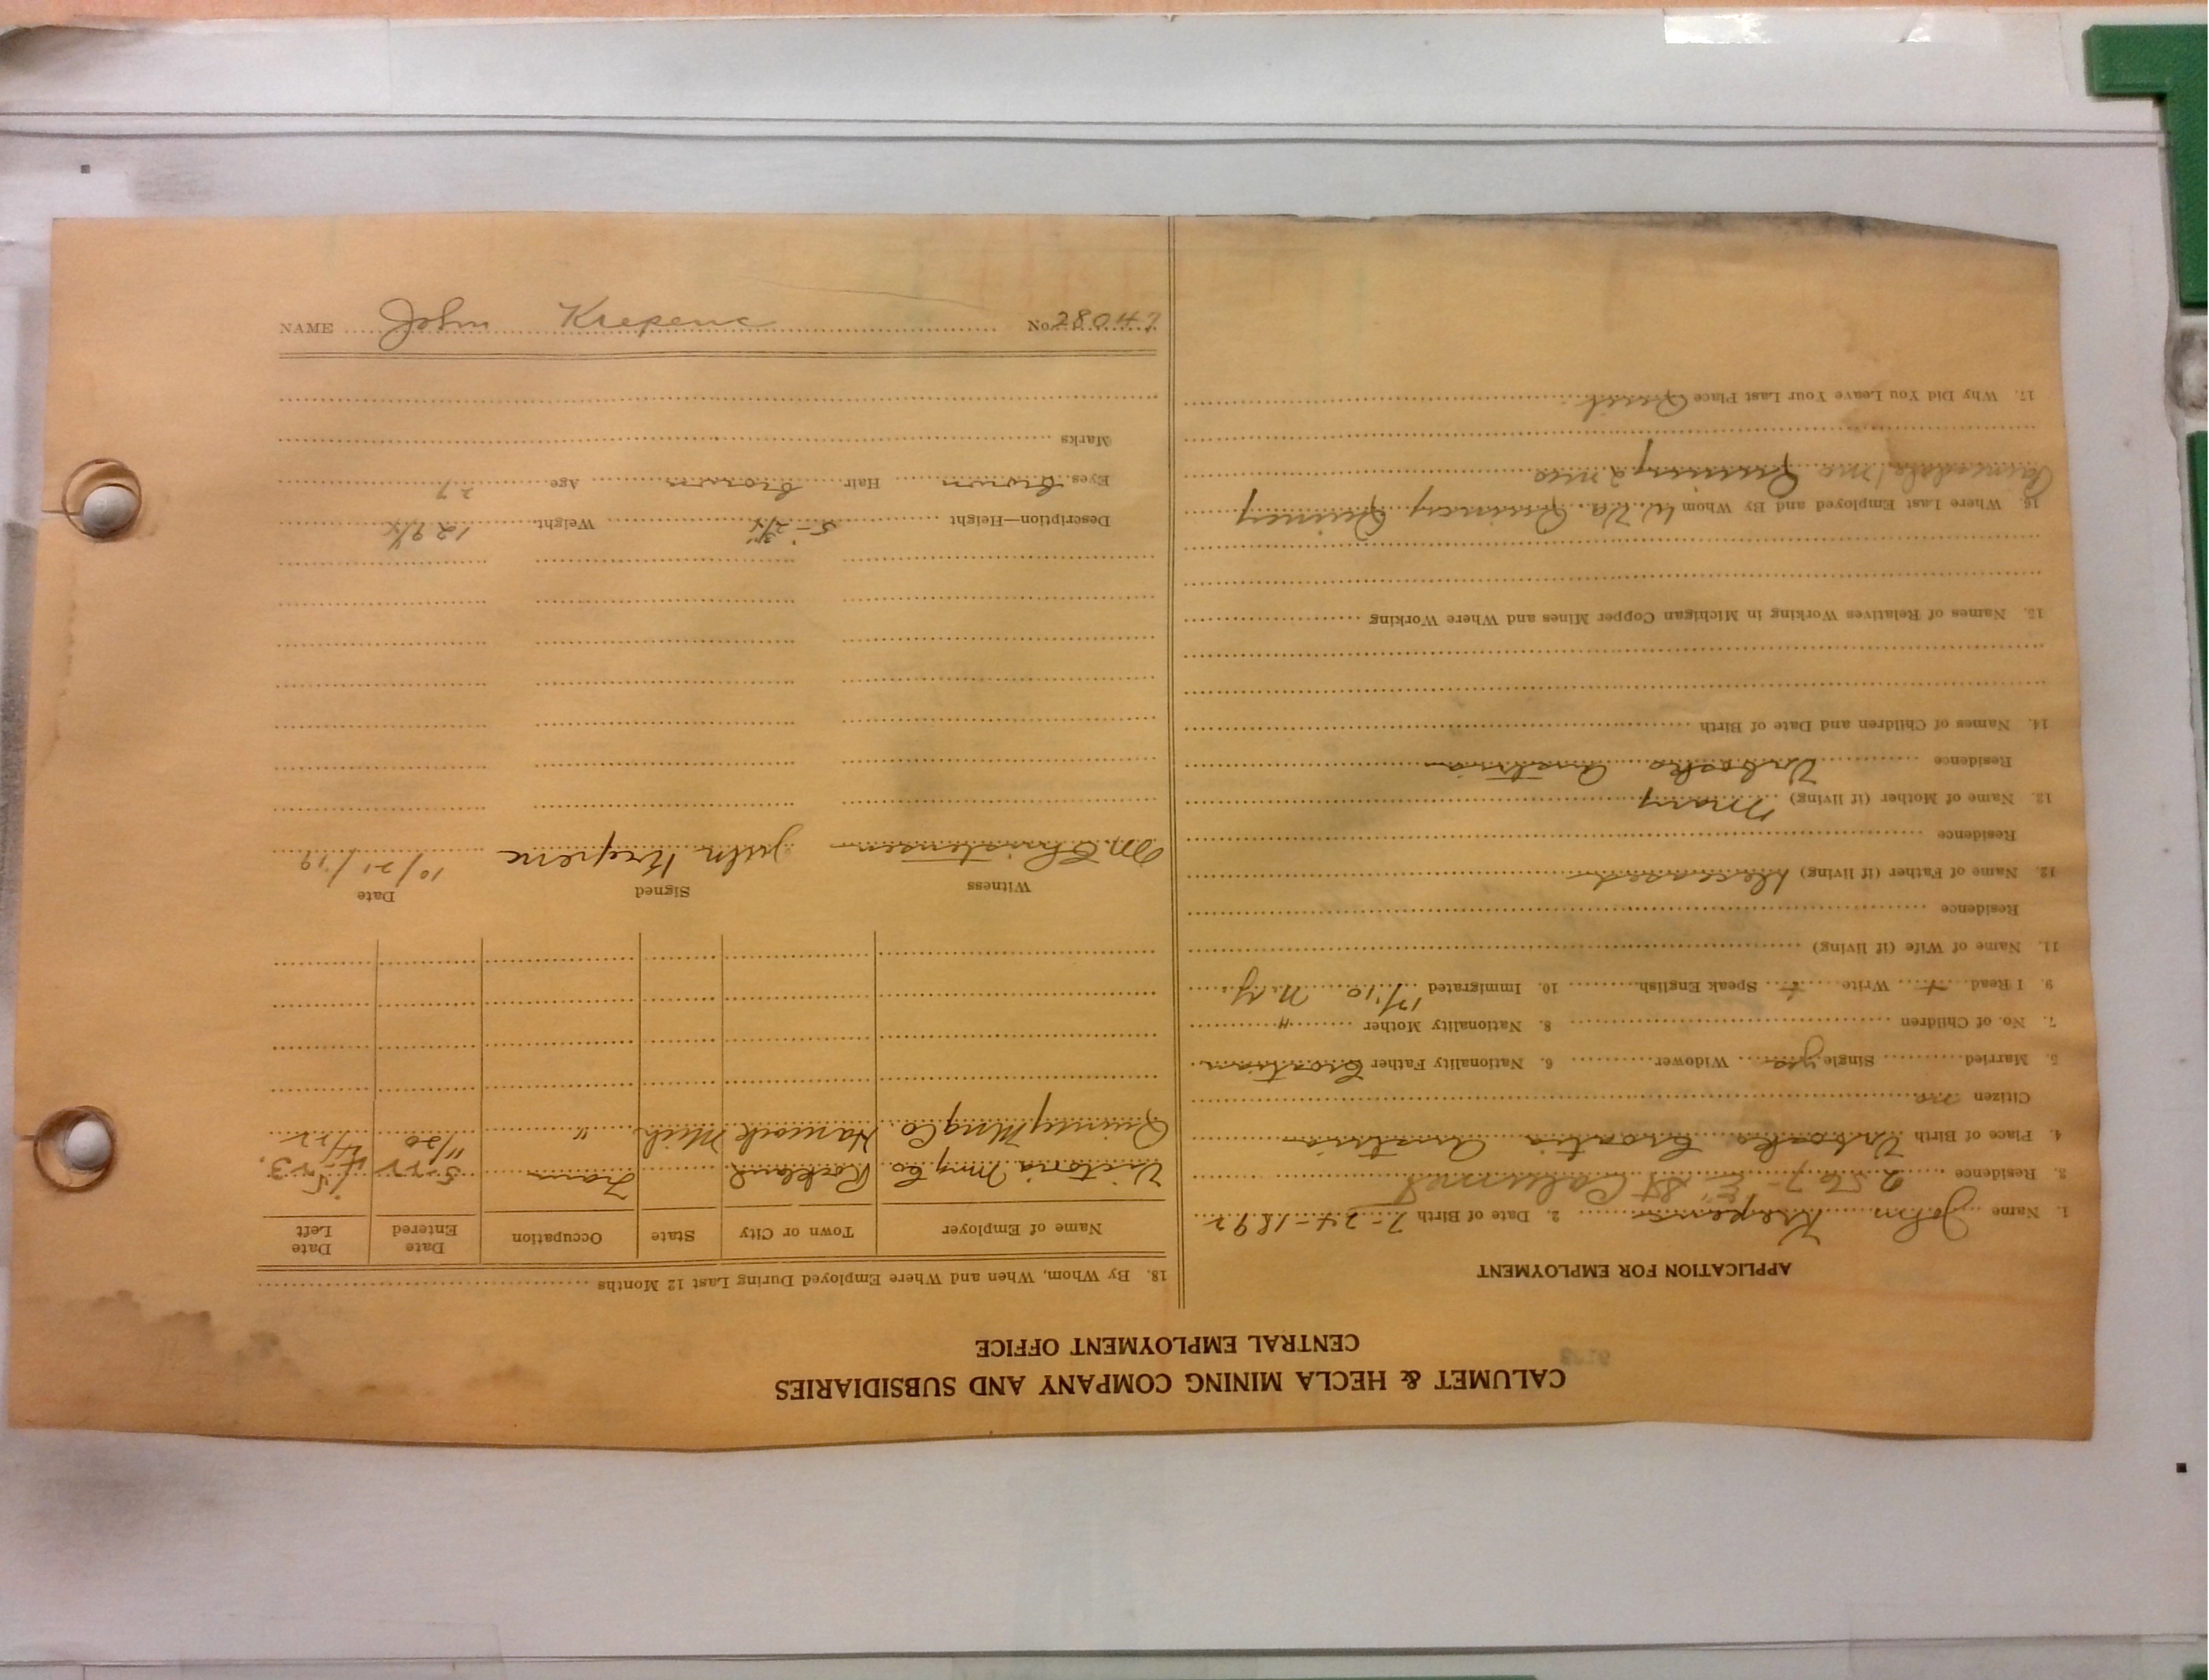 CALUMET & HECLA MINING COMPANY AND SUBSIDIARIES
CENTRAL EMPLOYMENT OFFICE
APPLICATION FOR EMPLOYMENT
1. Name John Krepenc 2. Date of Birth 7-24-1892
3. Residence 2567-E" St Calumet
4. Place of Birth Croatia Austria
Citizen no
5. Married Single yes Widower 6. Nationality Father Croatian
7. No. of Children 8. Nationality Mother "
9. I Read + Write + Speak English 10. Immigrated 12/10 N.Y.
11. Name of Wife (if living)
Residence
12. Name of Father (if living) Deceased
Residence
13. Name of Mother (if living) Mary
Residence Austria
14. Names of Children and Date of Birth
15. Names of Relatives Working in Michigan Copper Mines and Where Working
16. Where Last Employed and By Whom W. Va. Quincy Quincy
Quincy 2 mos
17. Why Did You Leave Your Last Place Quit
18. By Whom, When and Where Employed During Last 12 Months
Name of Employer Town or City State Occupation Date Entered Date Left
Victoria Mng Co Rockland Tram 5-22
Quincy Mng Co. Hancock Mich " 11/20 4/22
Witness Signed Date
M. Christensen John Krepenc 10/21/19
Description—Height 5-2 Weight 129
Eyes brown Hair brown Age 27
Marks
NAME John Krepenc No. 28047